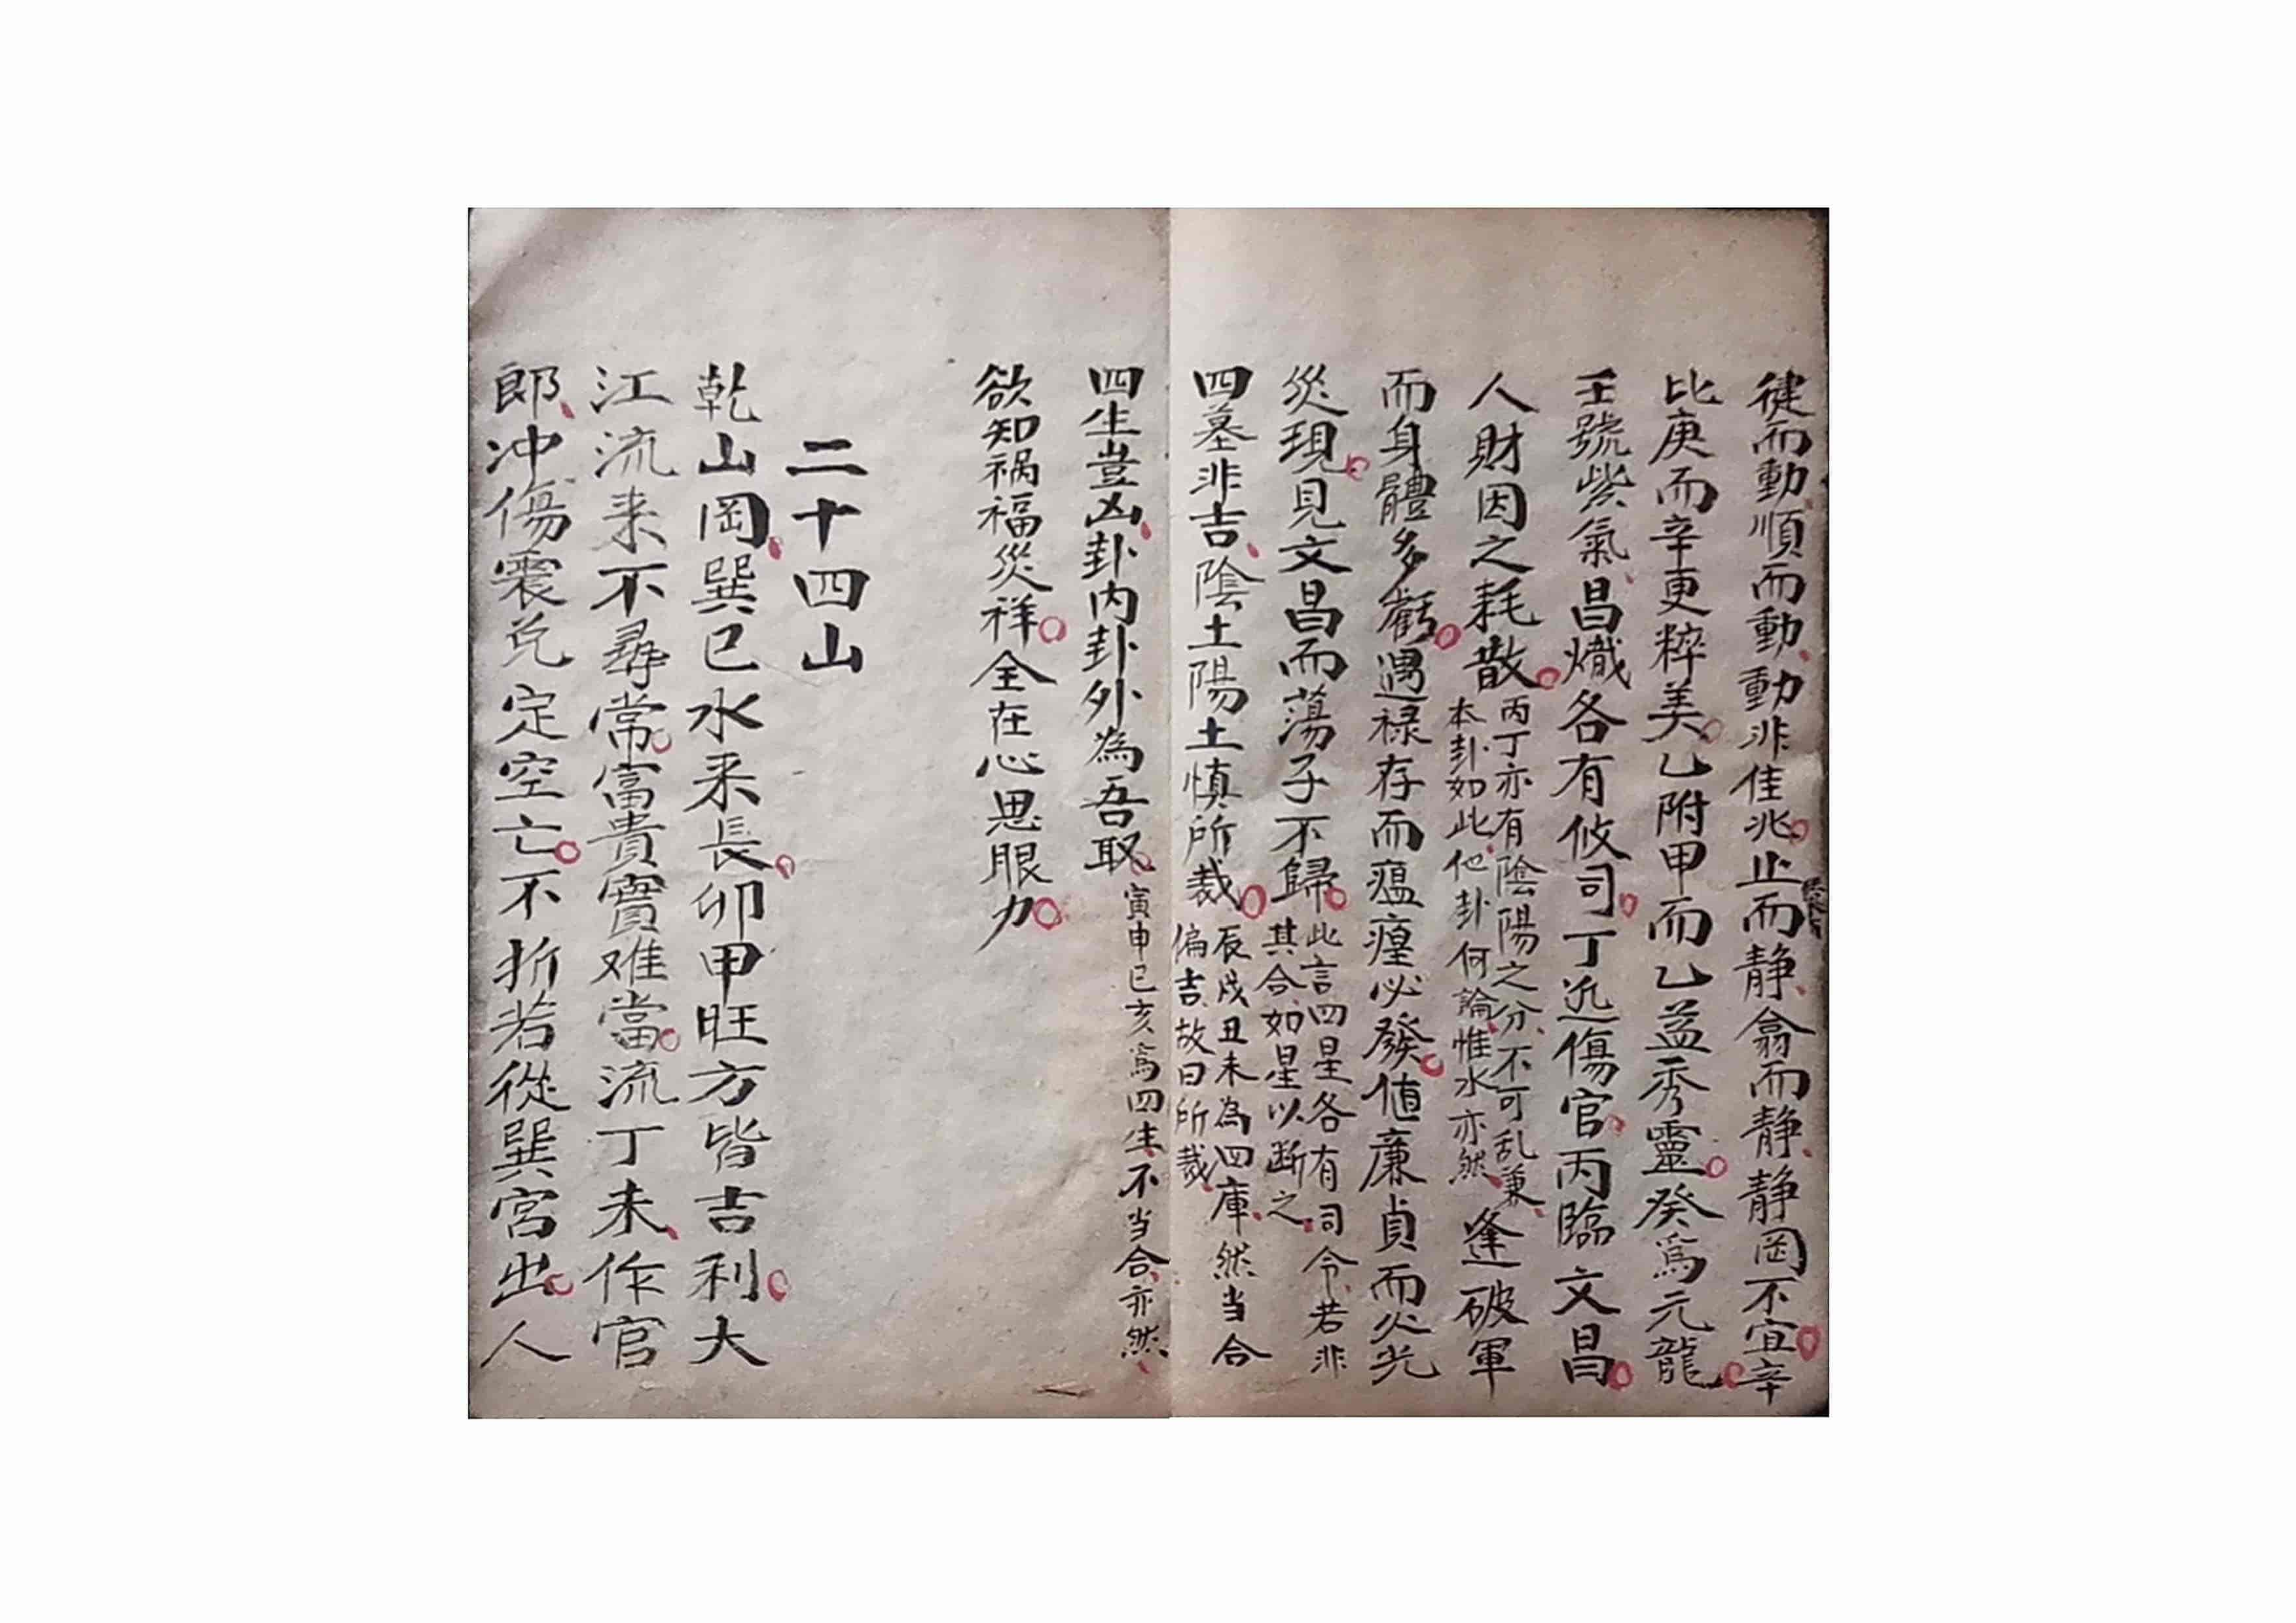 徤而動順而動動非佳兆止而静翕而静静罔不宜辛
比庚而辛更粹美乙附甲而乙益秀靈癸爲元龍
壬號紫氣昌熾各有攸司丁近傷官丙臨文昌
人財因之耗散丙丁亦有陰陽之分不可乱兼本卦如此他卦何論惟水亦然逢破軍
而身體多虧遇禄存而瘟㾮必發値廉貞而火光
災現見文昌而蕩子不歸此言四星各有司令若非其合如星以断之
四墓非吉陰土陽土慎所裁辰戌丑未為四庫然当合偏吉故曰所裁
四生豈凶卦内卦外為吾取寅申巳亥爲四生不当合亦然
欲知祸福災祥全在心思眼力
二十四山
乾山岡巽巳水来長卯甲旺方皆吉利大
江流来不尋常富貴實难當流丁未作官
郎冲傷震兑定空亡不折若從巽宮出人